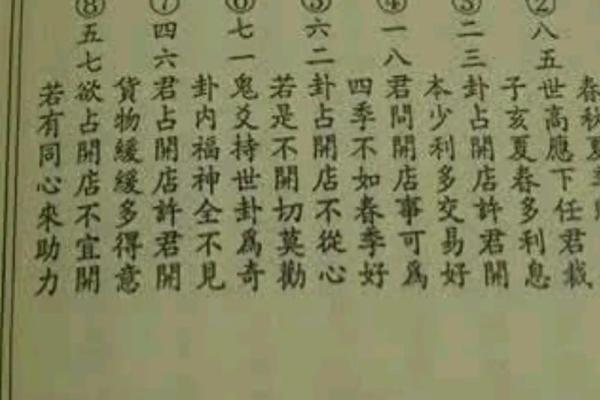 春秋夏季
②八五世高應下任君裁
子亥夏春多利息
③二三卦占開店許君開
本少利多交易好
④一八君問開店事可為
四季不如春季好
⑤六二卦占開店不從心
若是不開切莫勸
⑥七一鬼爻持世卦為奇
卦內福神全不見
⑦四六君占開店許君開
貨物緩緩多得意
⑧五七欲占開店不宜開
若有同心來助力